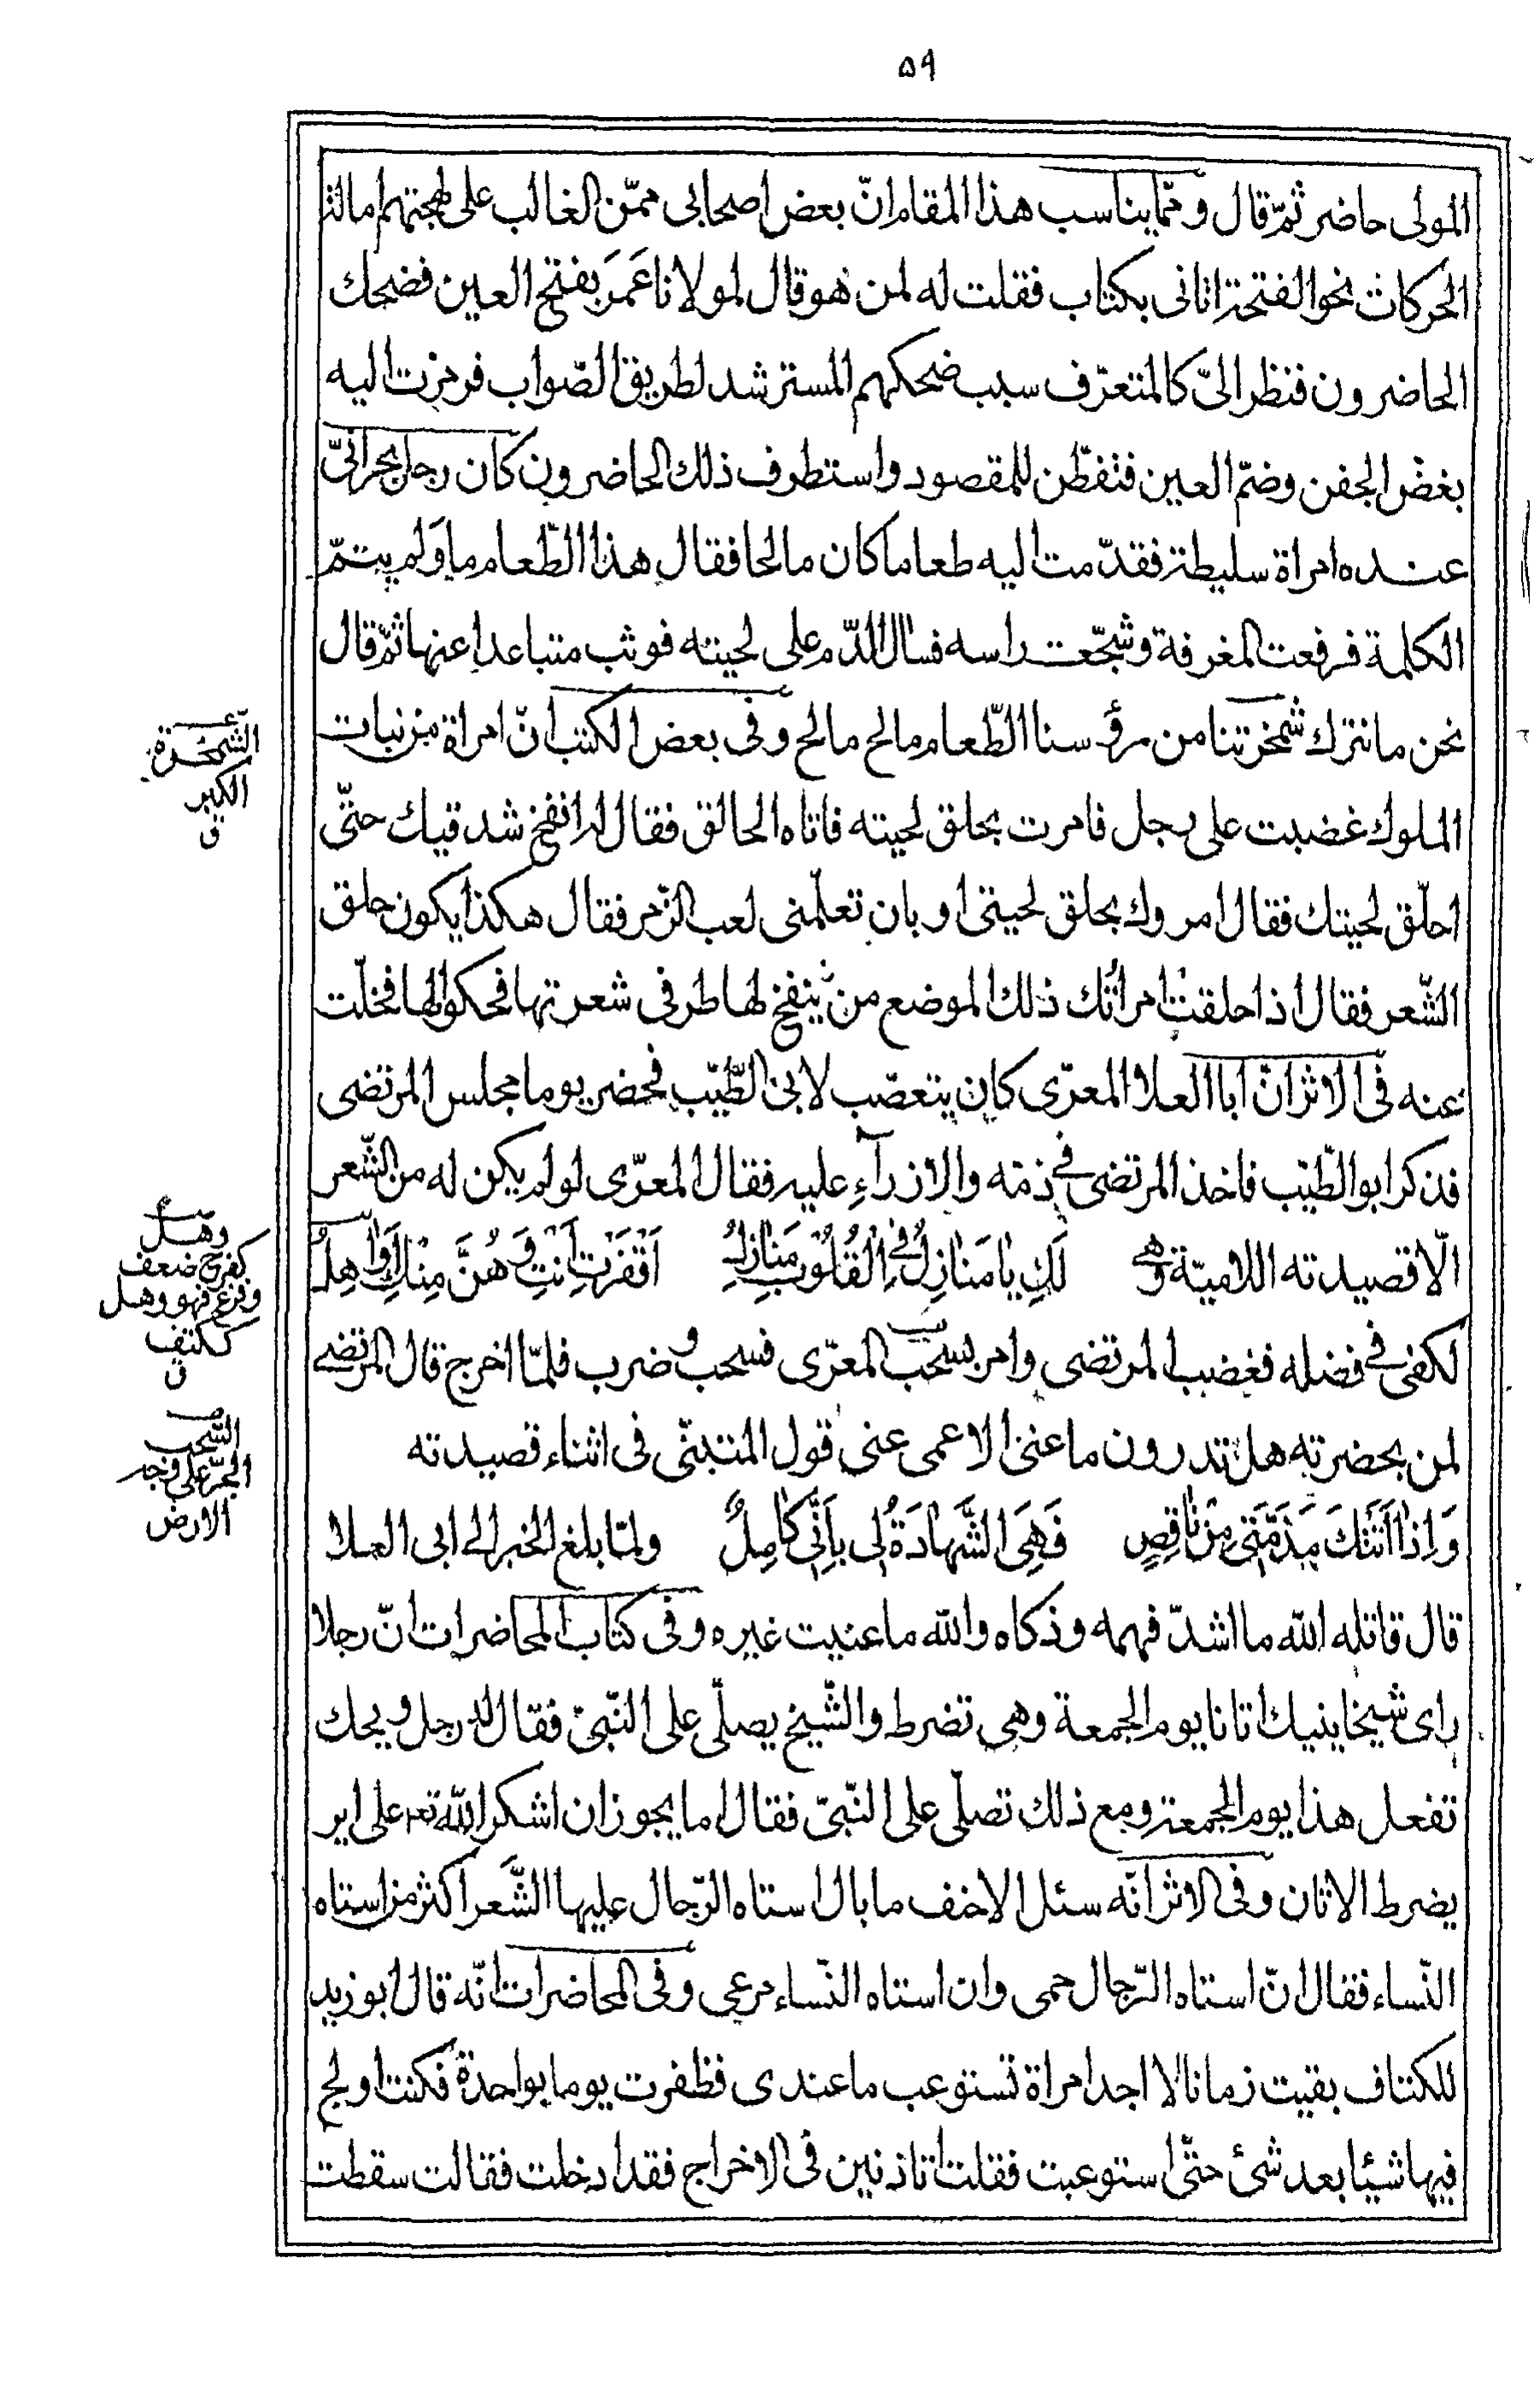 ٥٩
المولى حاضر ثمّ قال وممّا يناسب هذا المقام انّ بعض اصحابى ممّن الغالب على لهجتهم امالة
الحركات نحو الفتحة اتانى بكتاب فقلت له لمن هو قال لمولانا عَمَر بفتح العين فضحك
الحاضرون فنظر الىّ كالمتعرّف سبب ضحكهم المسترشد لطريق الصّواب فرمزت اليه
بغضّ الجفن وضمّ العين فتفطّن للمقصود واستطرف ذلك الحاضرون كان رجل بحرانىّ
عنده امراة سليطة فقدّمت اليه طعاما كان مالحا فقال هذا الطّعام ما ولم يتمّ
الكلمة فرفعت المغرفة وشجّعت راسه فسال الدّم على لحيته فوثب متباعدا عنها ثمّ قال
نحن ما نترك شمخرتنا من رؤسنا الطّعام مالح مالح وفى بعض الكتب انّ امراة من بنات
الملوك غضبت على رجل فامرت بحلق لحيته فاتاه الحالق فقال له انفخ شدقيك حتّى
احلّق لحيتك فقال امروك بحلق لحيتى او بان تعلّمنى لعب الزّمر فقال هكذا يكون حلق
الشّعر فقال اذا حلقت امراتك ذلك الموضع من ينفخ لها طرفى شعرتها فحكوا لها فخلّت
عنه فى الاثر انّ ابا العلا المعرّى كان يتعصّب لابى الطّيّب فحضر يوما مجلس المرتضى
فذكر ابو الطّيّب فاخذ المرتضى فى ذمّه والازرآءِ عليه فقال المعرّى لو لم يكن له من الشّعر
الّا قصيدته اللاميّة وهى لَكِ يا مَنازِلُ فِى الْقُلُوبِ مَنازِلُ اَقْفَرْتِ اَنْتِ وَهُنَّ مِنْكِ اَواهِلُ
لكفى فى فضله فغضب المرتضى وامر بسحب المعرّى فسحب وضرب فلمّا اخرج قال المرتضى
لمن بحضرته هل تدرون ما عنى الاعمى عنى قول المتنبّى فى اثناء قصيدته
وَاِذا اَتَتْكَ مَذَمَّتى مِنْ ناقِصٍ فَهِىَ الشَّهادَةُ لى بِاَنّى كامِلٌ ولمّا بلغ الخبر الى ابى العلا
قال قاتله الله ما اشدّ فهمه وذكاه والله ما عنيت غيره وفى كتاب المحاضرات انّ رجلا
راى شيخا ينيك اتانا يوم الجمعة وهى تضرط والشّيخ يصلّى على النّبىّ فقال له رجل ويحك
تفعل هذا يوم الجمعة ومع ذلك تصلّى على النّبىّ فقال اما يجوز ان اشكر الله تعـ على اير
يضرط الاتان وفى الاثر انّه سئل الاخنف ما بال استاه الرّجال عليها الشّعر اكثر من استاه
النّساء فقال انّ استاه الرّجال حمى وان استاه النّساء مرعى وفى المحاضرات انّه قال ابو زيد
للكتاف بقيت زمانا لا اجد امراة تستوعب ما عندى فظفرت يوما بواحدة فكنت اولج
فيها شيئا بعد شئ حتّى استوعبت فقلت اتاذنين فى الاخراج فقد ادخلت فقالت سقطت
الشّمخرة
الكبر
ق
وهل
كفرح ضعف
وفزع فهو وهل
ككتف
ق
السّحب
الجرّ على وجه
الارض